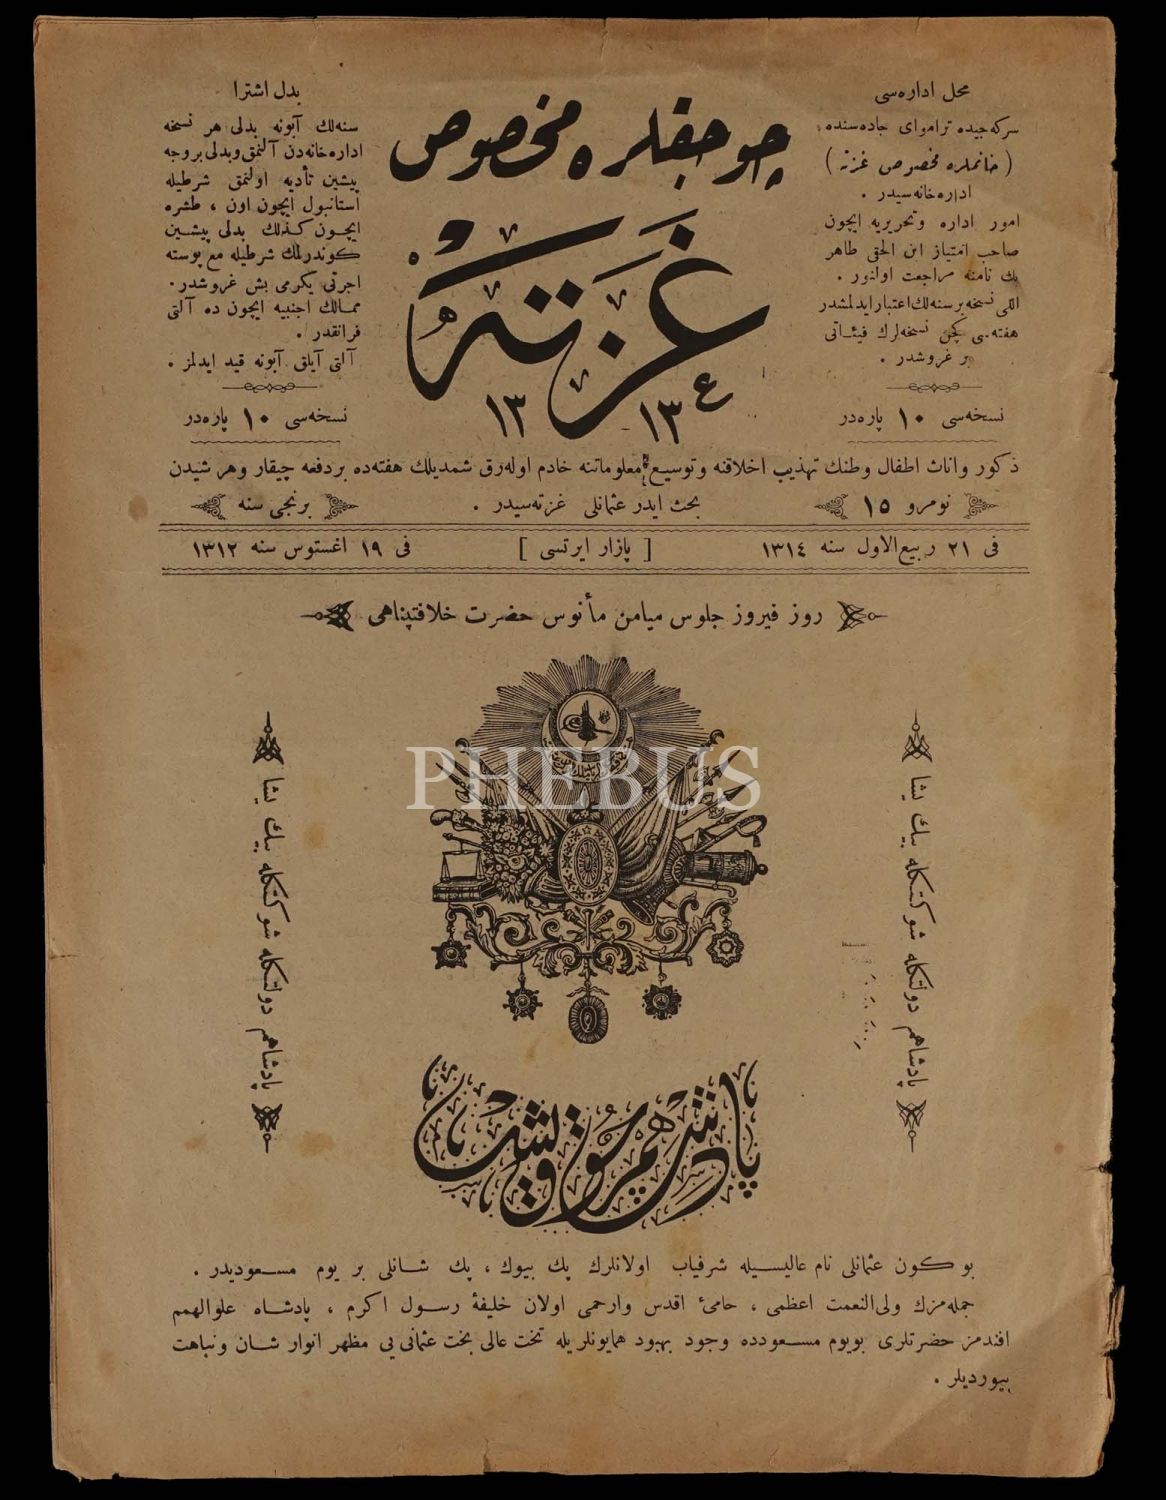 محل اداره‌سی
سركه‌جیده تراموای جاده‌سنده
( خانملره مخصوص غزته )
اداره‌خانه‌سیدر .
امور اداره وتحریریه ایچون
صاحب امتیاز ابن الحقی طاهر
بك نامنه مراجعت اولنور .
اللی نسخه برسنه‌لك اعتبار ایدلمشدر
هفته‌سی كچن نسخه‌لرك فیئاتی
بر غروشدر .
نسخه‌سی ١٠ پاره‌در
چوجقلره مخصوص
غزته
١٣١٣
بدل اشترا
سنه‌لك آبونه بدلی هر نسخه
اداره‌خانه‌دن آلنمق وبدلی بروجه
پیشین تأدیه اولنمق شرطیله
استانبول ایچون اون ، طشره
ایچون كذلك بدلی پیشین
كوندرلمك شرطیله مع پوسته
اجرتی یكرمی بش غروشدر .
ممالك اجنبیه ایچون ده آلتی
فرانقدر .
آلتی آیلق آبونه قید ایدلمز .
نسخه‌سی ١٠ پاره‌در
ذكور واناث اطفال وطنك تهذیب اخلاقنه وتوسیع معلوماتنه خادم اوله‌رق شمدیلك هفته‌ده بردفعه چیقار وهر شیدن
نومرو ١٥
بحث ایدر عثمانلی غزته‌سیدر .
برنجی سنه
فی ٢١ ربیع‌الاول سنه ١٣١٤
[ پازار ایرتسی ]
فی ١٩ اغستوس سنه ١٣١٢
روز فیروز جلوس میامن مأنوس حضرت خلافتپناهی
پادشاهم دولتكله شوكتكله بیك یشا
PHEBUS
پادشاهم دولتكله شوكتكله بیك یشا
پادشاهم چوق یشا
بو كون عثمانلی نام عالیسیله شرفیاب اولانلرك پك بیوك ، پك شانلی بر یوم مسعودیدر .
جمله‌مزك ولی‌النعمت اعظمی ، حامئ اقدس وارحمی اولان خلیفۀ رسول اكرم ، پادشاه علوالهمم
افندمز حضرتلری بویوم مسعودده وجود بهبود همایونلریله تخت عالی بخت عثمانی‌یی مظهر انوار شان ونباهت
بیوردیلر .